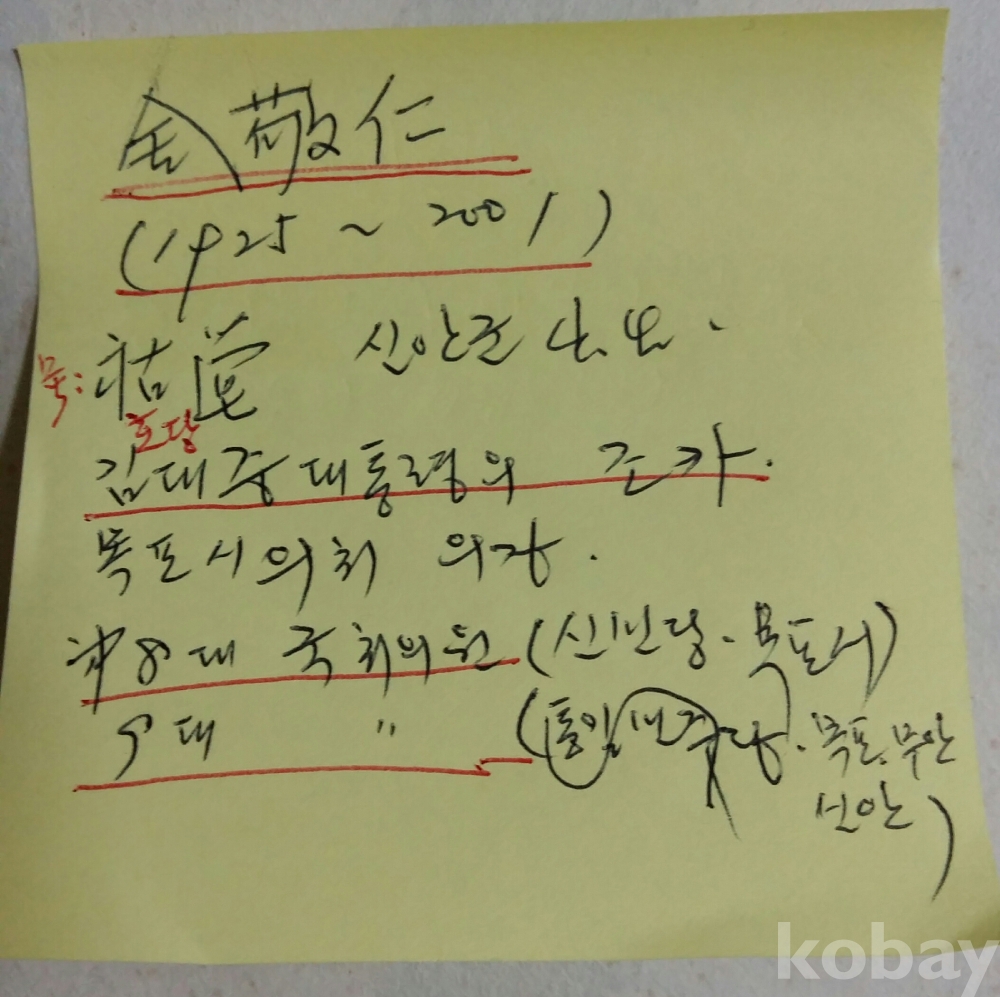 金敬仁
(1925 ~ 2001)
호: 祜堂 신안군
호당
김대중대통령의 조카.
목포시의회 의장.
第8대 국회의원 (신민당-목포시)
9대 〃 (통일민주당. 목포.무안
신안)
kobay